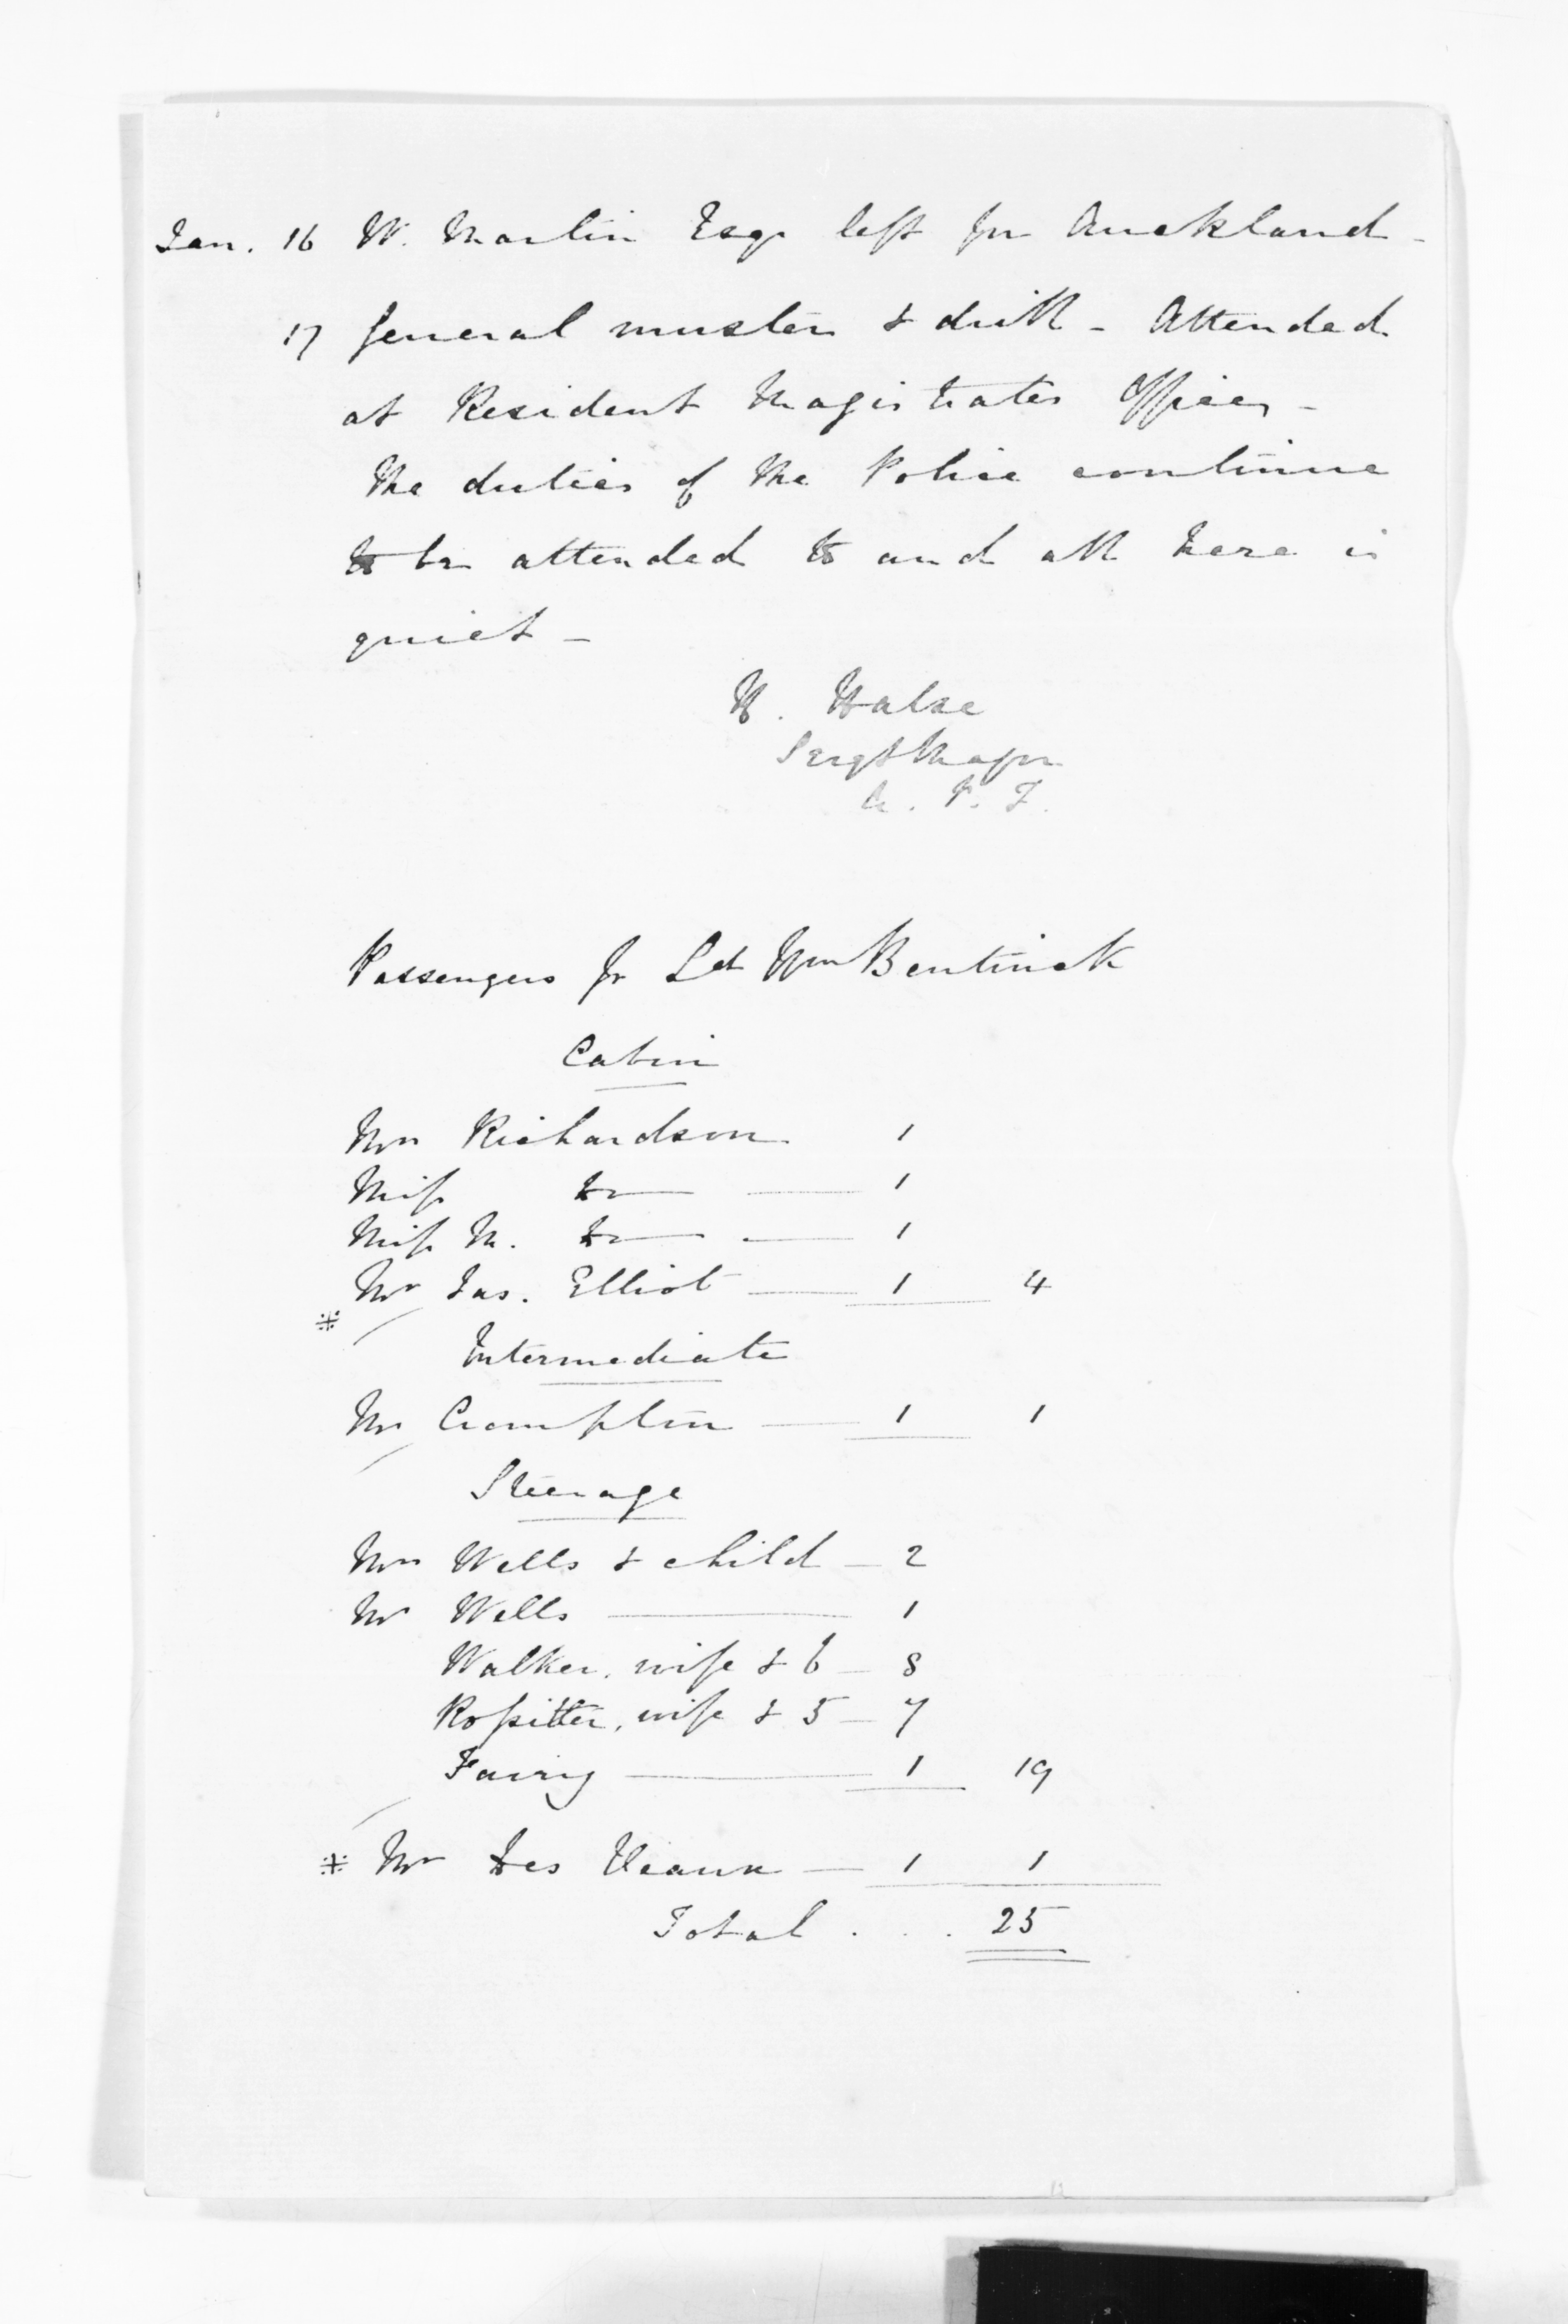 Jan. 16 W. Martin Esqr left for Auckland -
17 General muster & drill - Attended
at Resident Magistrates Office, -
The duties of the Police continue
to be attended to and all here is
quiet -
W. Halse
Sergt Major
A. P. F.
Passengers pr Ld Wm Bentinck
Cabin
Mrs Richardson 1
Miss Do — 1
Miss M. Do — 1
Mr Jas. Elliot — 1 4
Intermediate
Mr Crompton — 1 1
Steerage
Mrs Wells & child — 2
Mr Wells — 1
Walker, wife & 6 — 8
Rossitter, wife & 5 — 7
Fairy — 1 19
Mr Des — 1 1
Total . . . 25